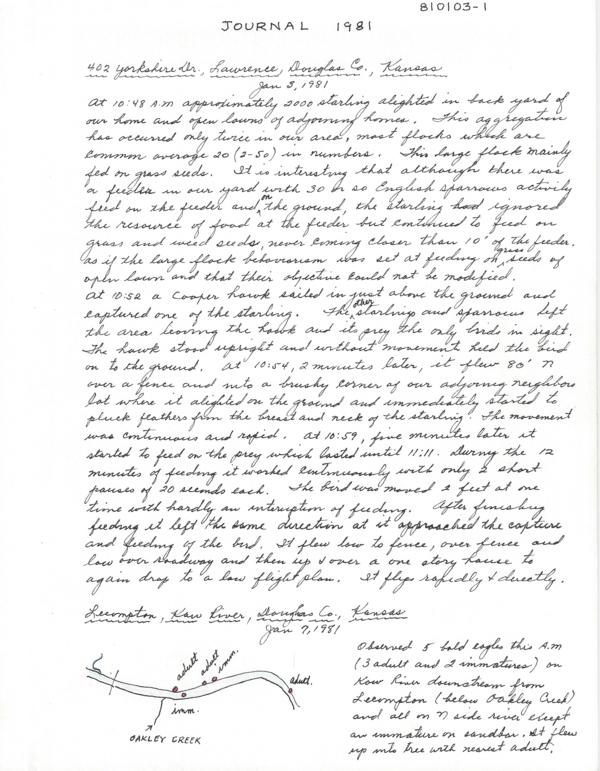 810103-1
JOURNAL 1981
402 Yorkshire Dr., Lawrence, Douglas Co., Kansas
Jan 3, 1981
At 10:48 AM approximately 2000 starling alighted in back yard of
our home and open lawns of adjoining homes. This aggregation
has occurred only twice in our area, most flocks which are
common average 20 (2-50) in numbers. This large flock mainly
fed on grass seeds. It is interesting that although there was
a feeder in our yard with 30 or so English sparrows activily
feed on the feeder and on the ground, the starling had ignored
the resource of food at the feeder but continued to feed on
grass and weed seeds, never coming closer than 10' of the feeder.
as if the large flock behaviorism was set at feeding on grass seeds of
open lawn and that their objective could not be modified.
At 10:52 a Cooper hawk sailed in just above the ground and
captured one of the starling. The other starlings and sparrows left
the area leaving the hawk and its prey the only birds in sight.
The hawk stood upright and without movement held the bird
on to the ground. At 10:54, 2 minutes later, it flew 80' N
over a fence and into a brushy corner of our adjoining neighbors
lot where it alighted on the ground and immediately started to
pluck feathers from the breast and neck of the starling. The movement
was continuous and rapid. At 10:59, five minutes later it
started to feed on the prey which lasted until 11:11. During the 12
minutes of feeding it worked continuously with only 2 short
pauses of 20 seconds each. The bird was moved 2 feet at one
time with hardly an interuption of feeding. After finishing
feeding it left the same direction at it approached the capture
and feeding of the bird. It flew low to fence, over fence and
low over roadway and then up & over a one story house to
again drop to a low flight plan. It flips rapidly & directly.
Lecompton, Kaw River, Douglas Co., Kansas
Jan 7, 1981
Observed 5 bald eagles this A.M
(3 adult and 2 immatures) on
Kaw River downstream from
Lecompton (below Oakley Creek)
and all on N side river except
an immature on sandbar. It flew
up into tree with nearest adult.
adult
adult
imm.
adult.
imm.
OAKLEY CREEK